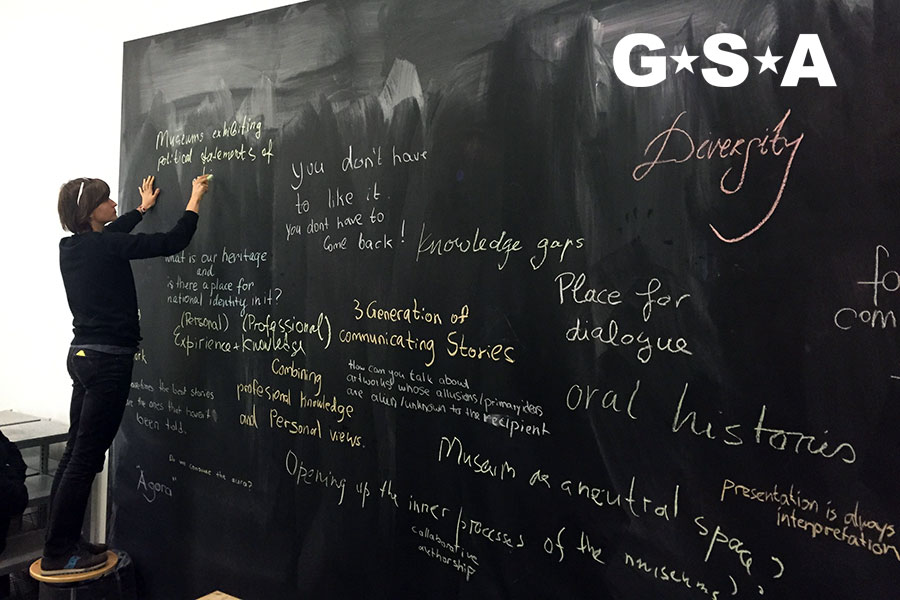 G★S★A
Diversity
Museums exhibiting
political statements of
you don't have
to like it.
you dont have to
come back!
Knowledge gaps
what is our heritage
and
is there a place for
national identity in it?
(Personal) (Professional)
Expirience + Knowledge
3 Generation of
communicating Stories
Place for
dialogue
fo
com
Combining
profesional knowledge
and Personal views.
How can you talk about
artworks whose allusions/primary ideas
are alien/unknown to the recipient
oral histories
the best stories
are the ones that haven't
been told.
Do we consume the aura?
"Agora"
Museum as a neutral space?
Presentation is always
interpretation
Opening up the inner processes of the museums?
collaborative
authorship